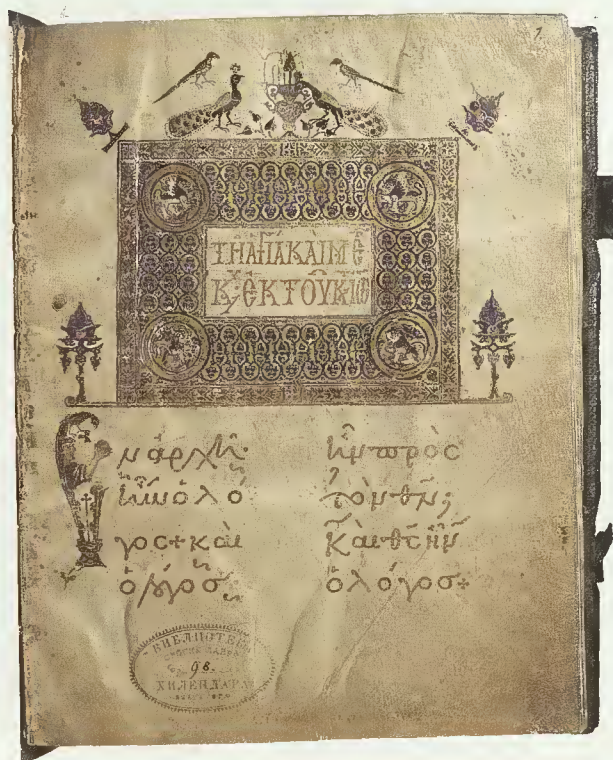 1
ΤΗ ΑΓΙΑ ΚΑΙ ΜΕ
Κ, ΕΚ ΤΟΥ Κ ΙΩ
Εν ἀρχῆ
ἦν ὁ λό
γος + καὶ
ὁ λόγοσ
ἦν πρὸς
τὸν θν;
Καὶ θς ἦν
ὁ λόγοσ+
БИБЛИОТЕ
98.
ХИЛЕНДАРА